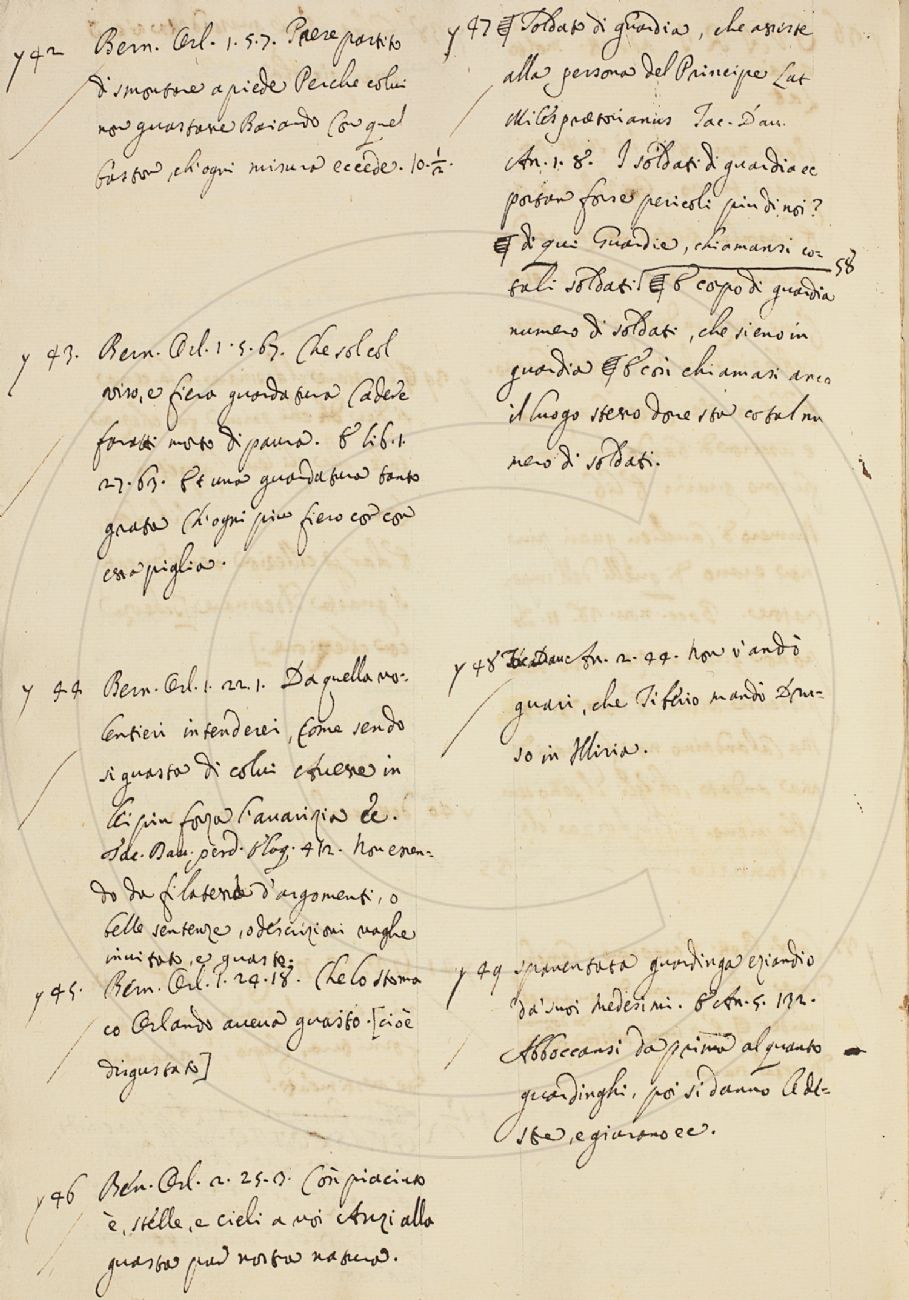 y 42 Bern. Orl. 1. 5. 7. Prese partito
di smontare a piede Perche colui
non guastasse Baiardo Con quel
baston, ch'ogni misura eccede. 10. 1/2.
y 43. Bern. Orl. 1. 5. 63. Che sol col
viso, e fiera guardatura Cadere
fareʼ morto di paura. E lib. 1.
27. 63. Et una guardatura tanto
grata Ch'ogni piu fiero cor con
essa piglia.
y 44 Bern. Orl. 1. 22. 1. Da quella vo-
lentieri intenderei, Come sendo
si guasta di colui Avesse in
lei piu forza l'avarizia Ec.
Tac. Dav. perd. Eloq. 412. Non essen-
do da filatere d'argomenti, o
belle sentenze, o descrizioni vaghe
invitato, e guasto.
y 45. Bern. Orl. 1. 24. 18. Che lo stoma
co Orlando aveva guasto. [cioè
disgustato]
y 46 Bern. Orl. 2. 25. 3. Così piaciuto
è, stelle, e cieli a voi Anzi alla
guasta pur nostra natura.
y 47 ¶ Soldato di guardia, che assiste
alla persona del Principe Lat
Miles praetorianus Tac. Dav.
An. 1. 8. I soldati di guardia ec
portan forse pericoli piu di noi?
¶ di qui Guardie, chiamansi co-
tali soldati ¶ E corpo di guardia 58
numero di soldati, che sieno in
guardia ¶ E così chiamasi anco
il luogo stesso dove sta cotal nu
mero di soldati.
y 48 Tac. Dav. An. 2. 44. Non v'andò
guari, che Tiberio mandò Dru-
so in Illiria.
y 49 spaventata guardinga eziandio
da' suoi medesimi. E An. 5. 132.
Abboccansi da prima alquanto
guardinghi, poi si danno le de-
stre, e giurano ec.